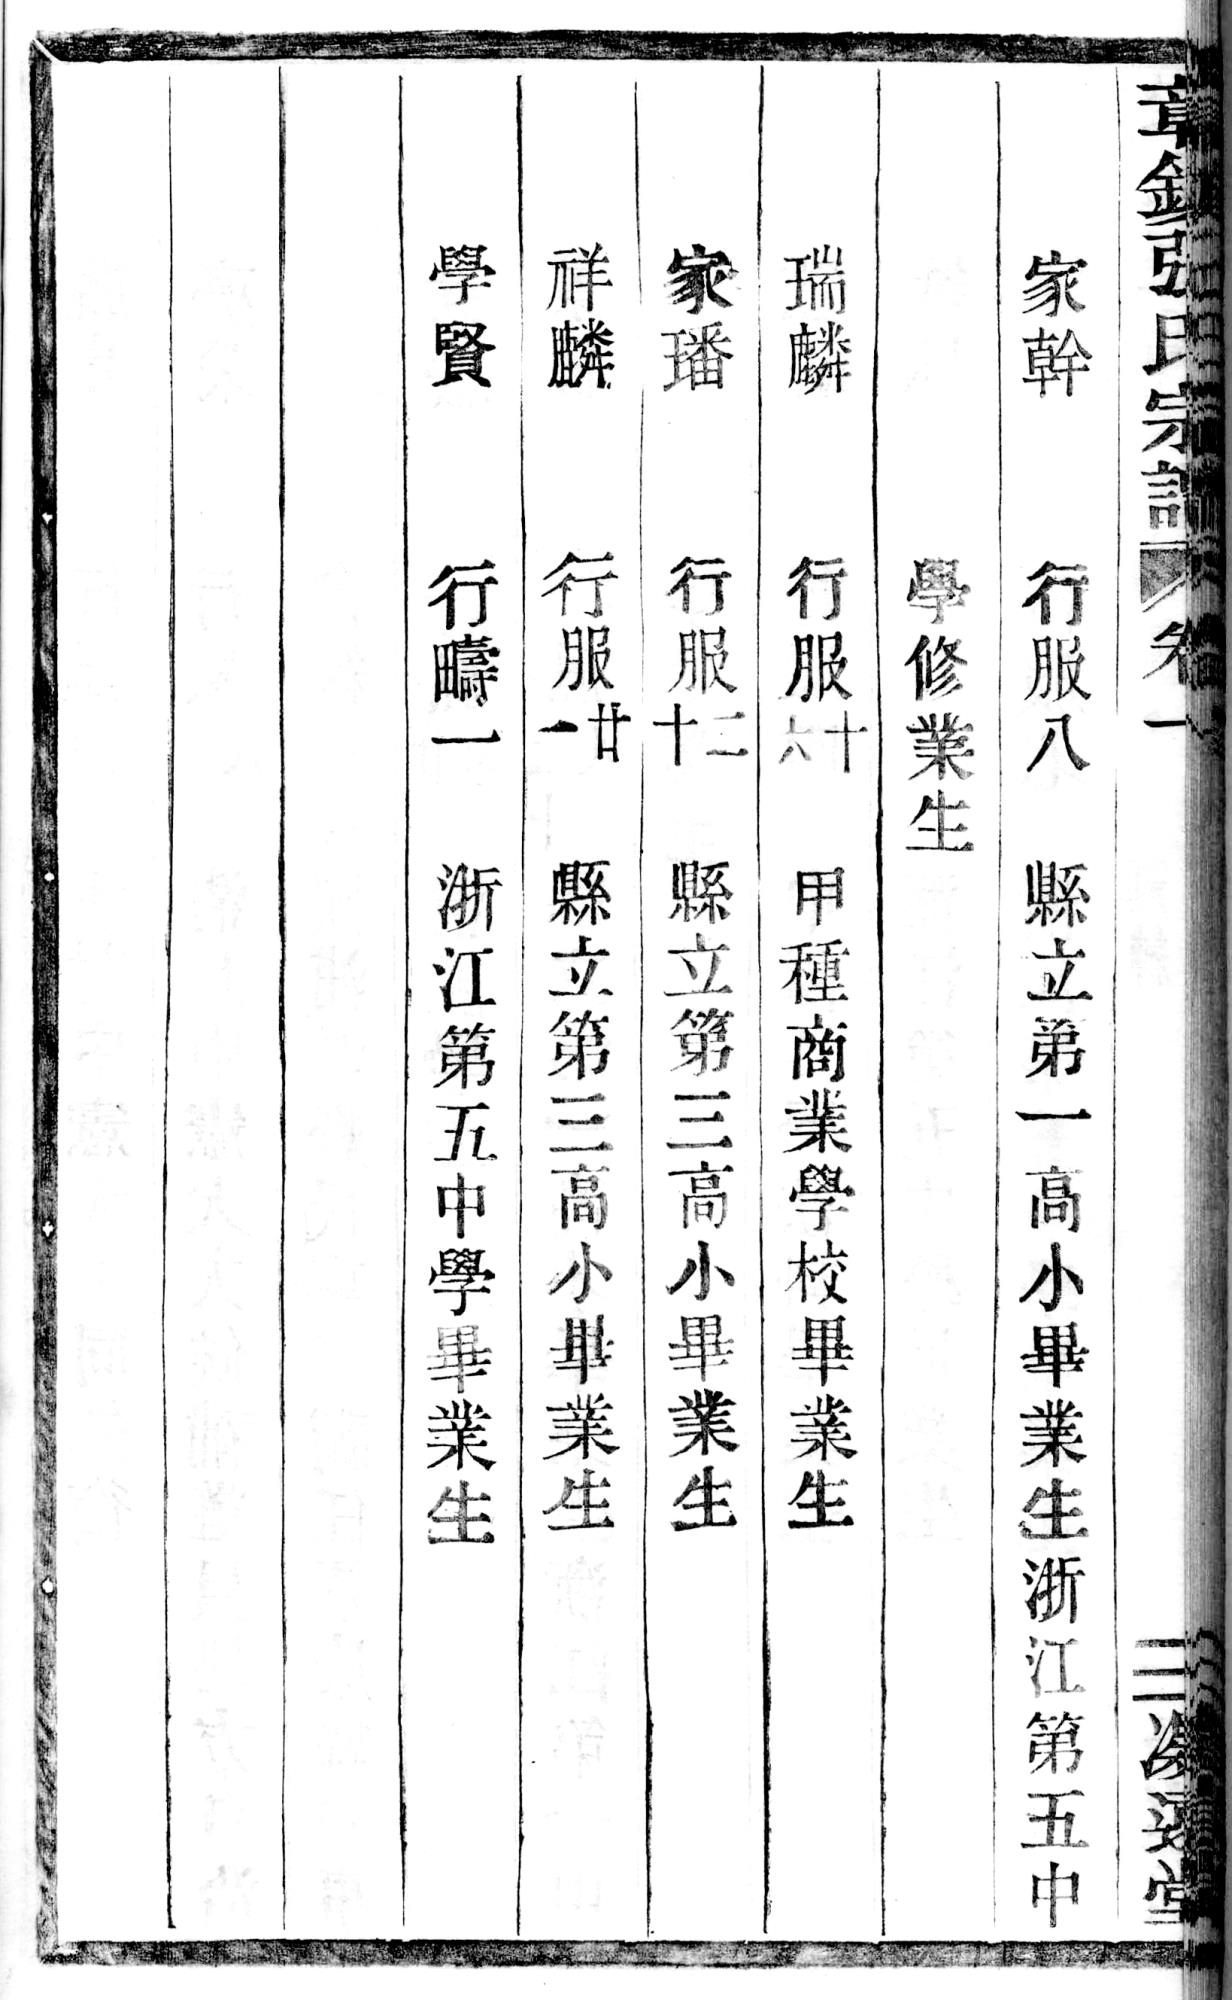 章鎮張氏宗譜 卷一 三 堂
家幹 行服八 縣立第一高小畢業生浙江第五中
學修業生
瑞麟 行服十六 甲種商業學校畢業生
家璠 行服二十 縣立第三高小畢業生
祥麟 行服廿一 縣立第三高小畢業生
學賢 行疇一 浙江第五中學畢業生